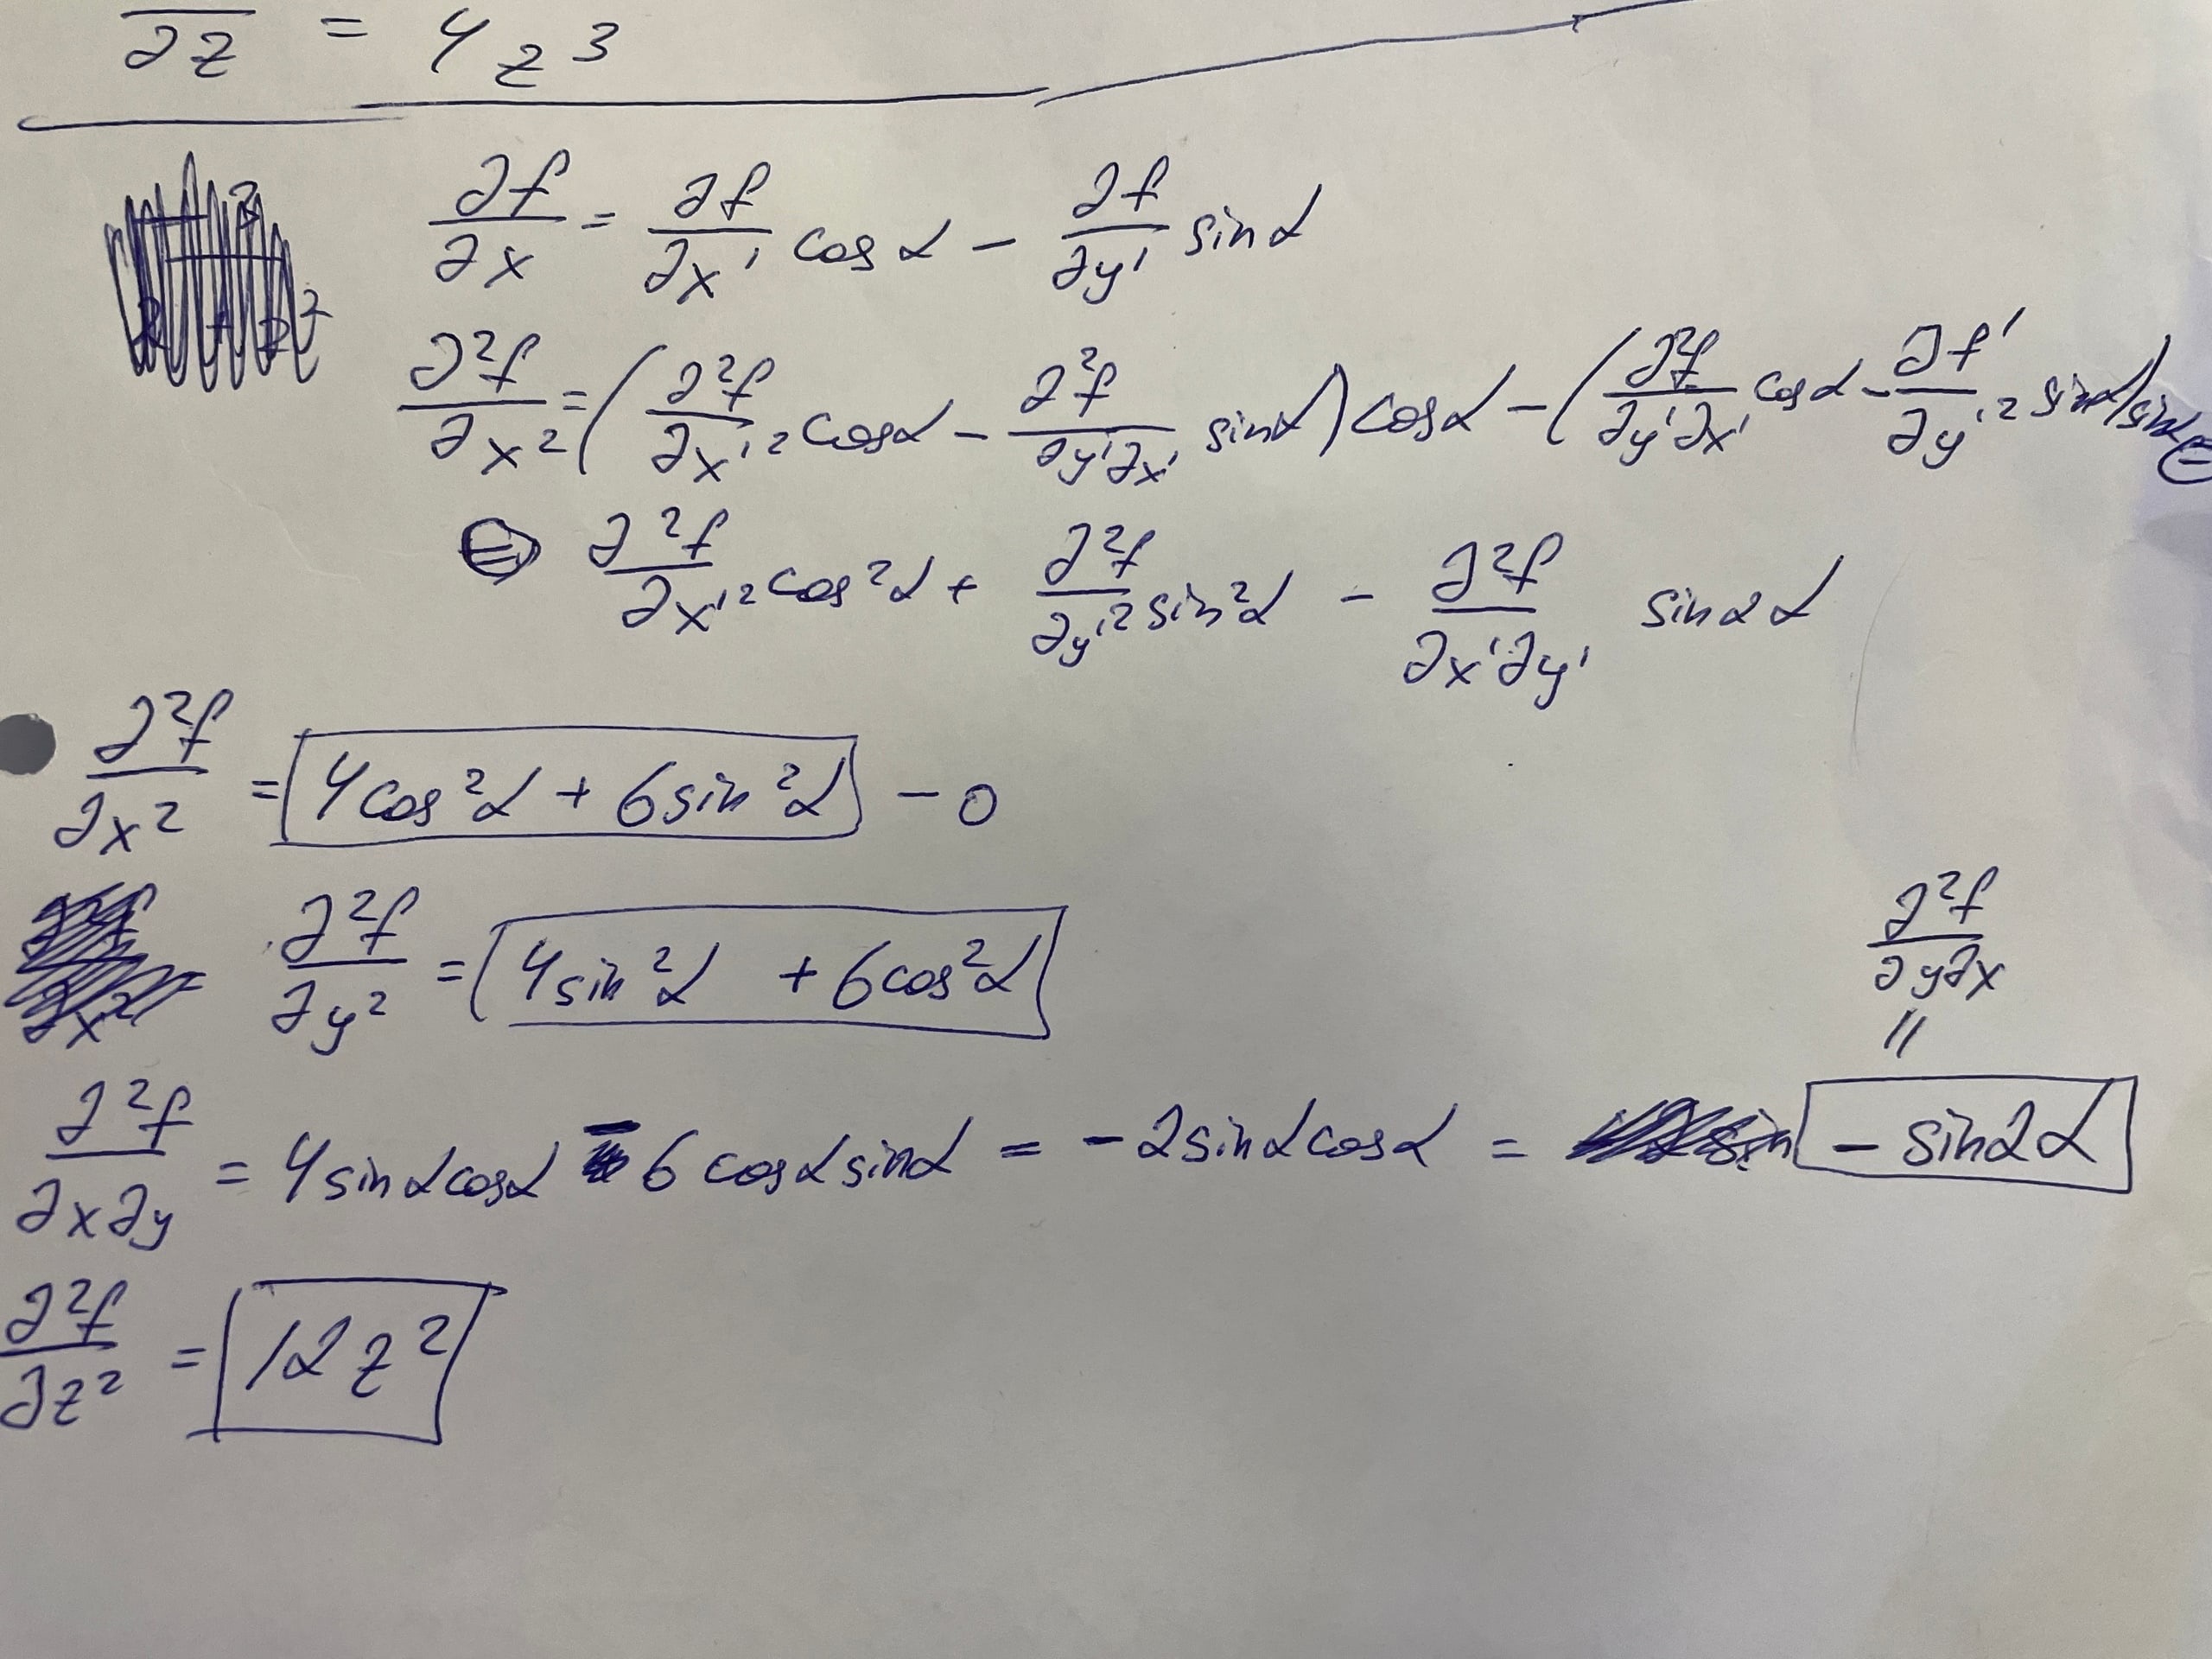 ∂z = 4z³
∂f/∂x = ∂f/∂x' cos α − ∂f/∂y' sin α
∂²f/∂x² = (∂²f/∂x'² cos α − ∂²f/∂y'∂x' sin α) cos α − (∂²f/∂y'∂x' cos α − ∂f'/∂y'² sin α) sin α ⊜
⊜ ∂²f/∂x'² cos²α + ∂²f/∂y'² sin²α − ∂²f/∂x'∂y' sin2α
∂²f/∂x² = 4cos²α + 6sin²α − 0
∂²f/∂y² = 4sin²α + 6cos²α
∂²f/∂y∂x
=
∂²f/∂x∂y = 4 sin α cos α − 6 cos α sin α = −2 sin α cos α = − sin2α
∂²f/∂z² = 12z²